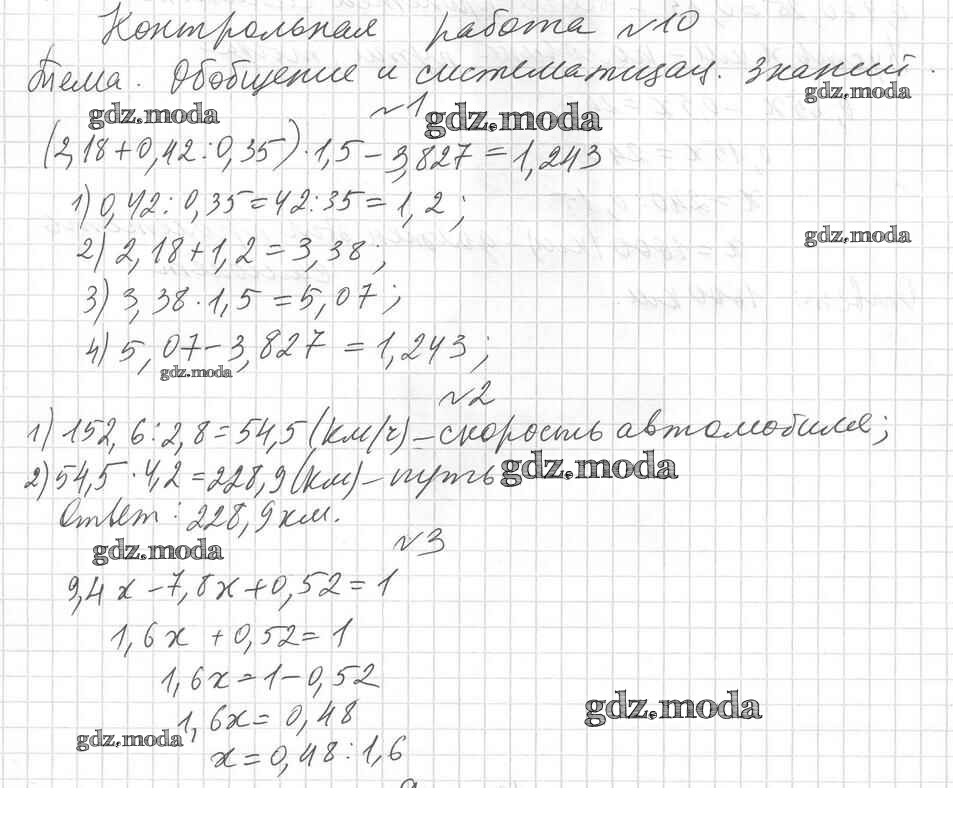 Контрольная работа №10
Тема. Обобщение и систематизац. знаний.
gdz.moda
gdz.moda
№1
gdz.moda
(2,18+0,42:0,35)·1,5-3,827=1,243
1) 0,42:0,35=42:35=1,2;
gdz.moda
2) 2,18+1,2=3,38;
3) 3,38·1,5=5,07;
4) 5,07-3,827=1,243;
gdz.moda
№2
1) 152,6:2,8=54,5 (км/ч) - скорость автомобиля;
2) 54,5·4,2=228,9 (км) - путь
gdz.moda
Ответ: 228,9 км.
gdz.moda
№3
9,4x-7,8x+0,52=1
1,6x+0,52=1
1,6x=1-0,52
gdz.moda
1,6x=0,48
gdz.moda
x=0,48:1,6